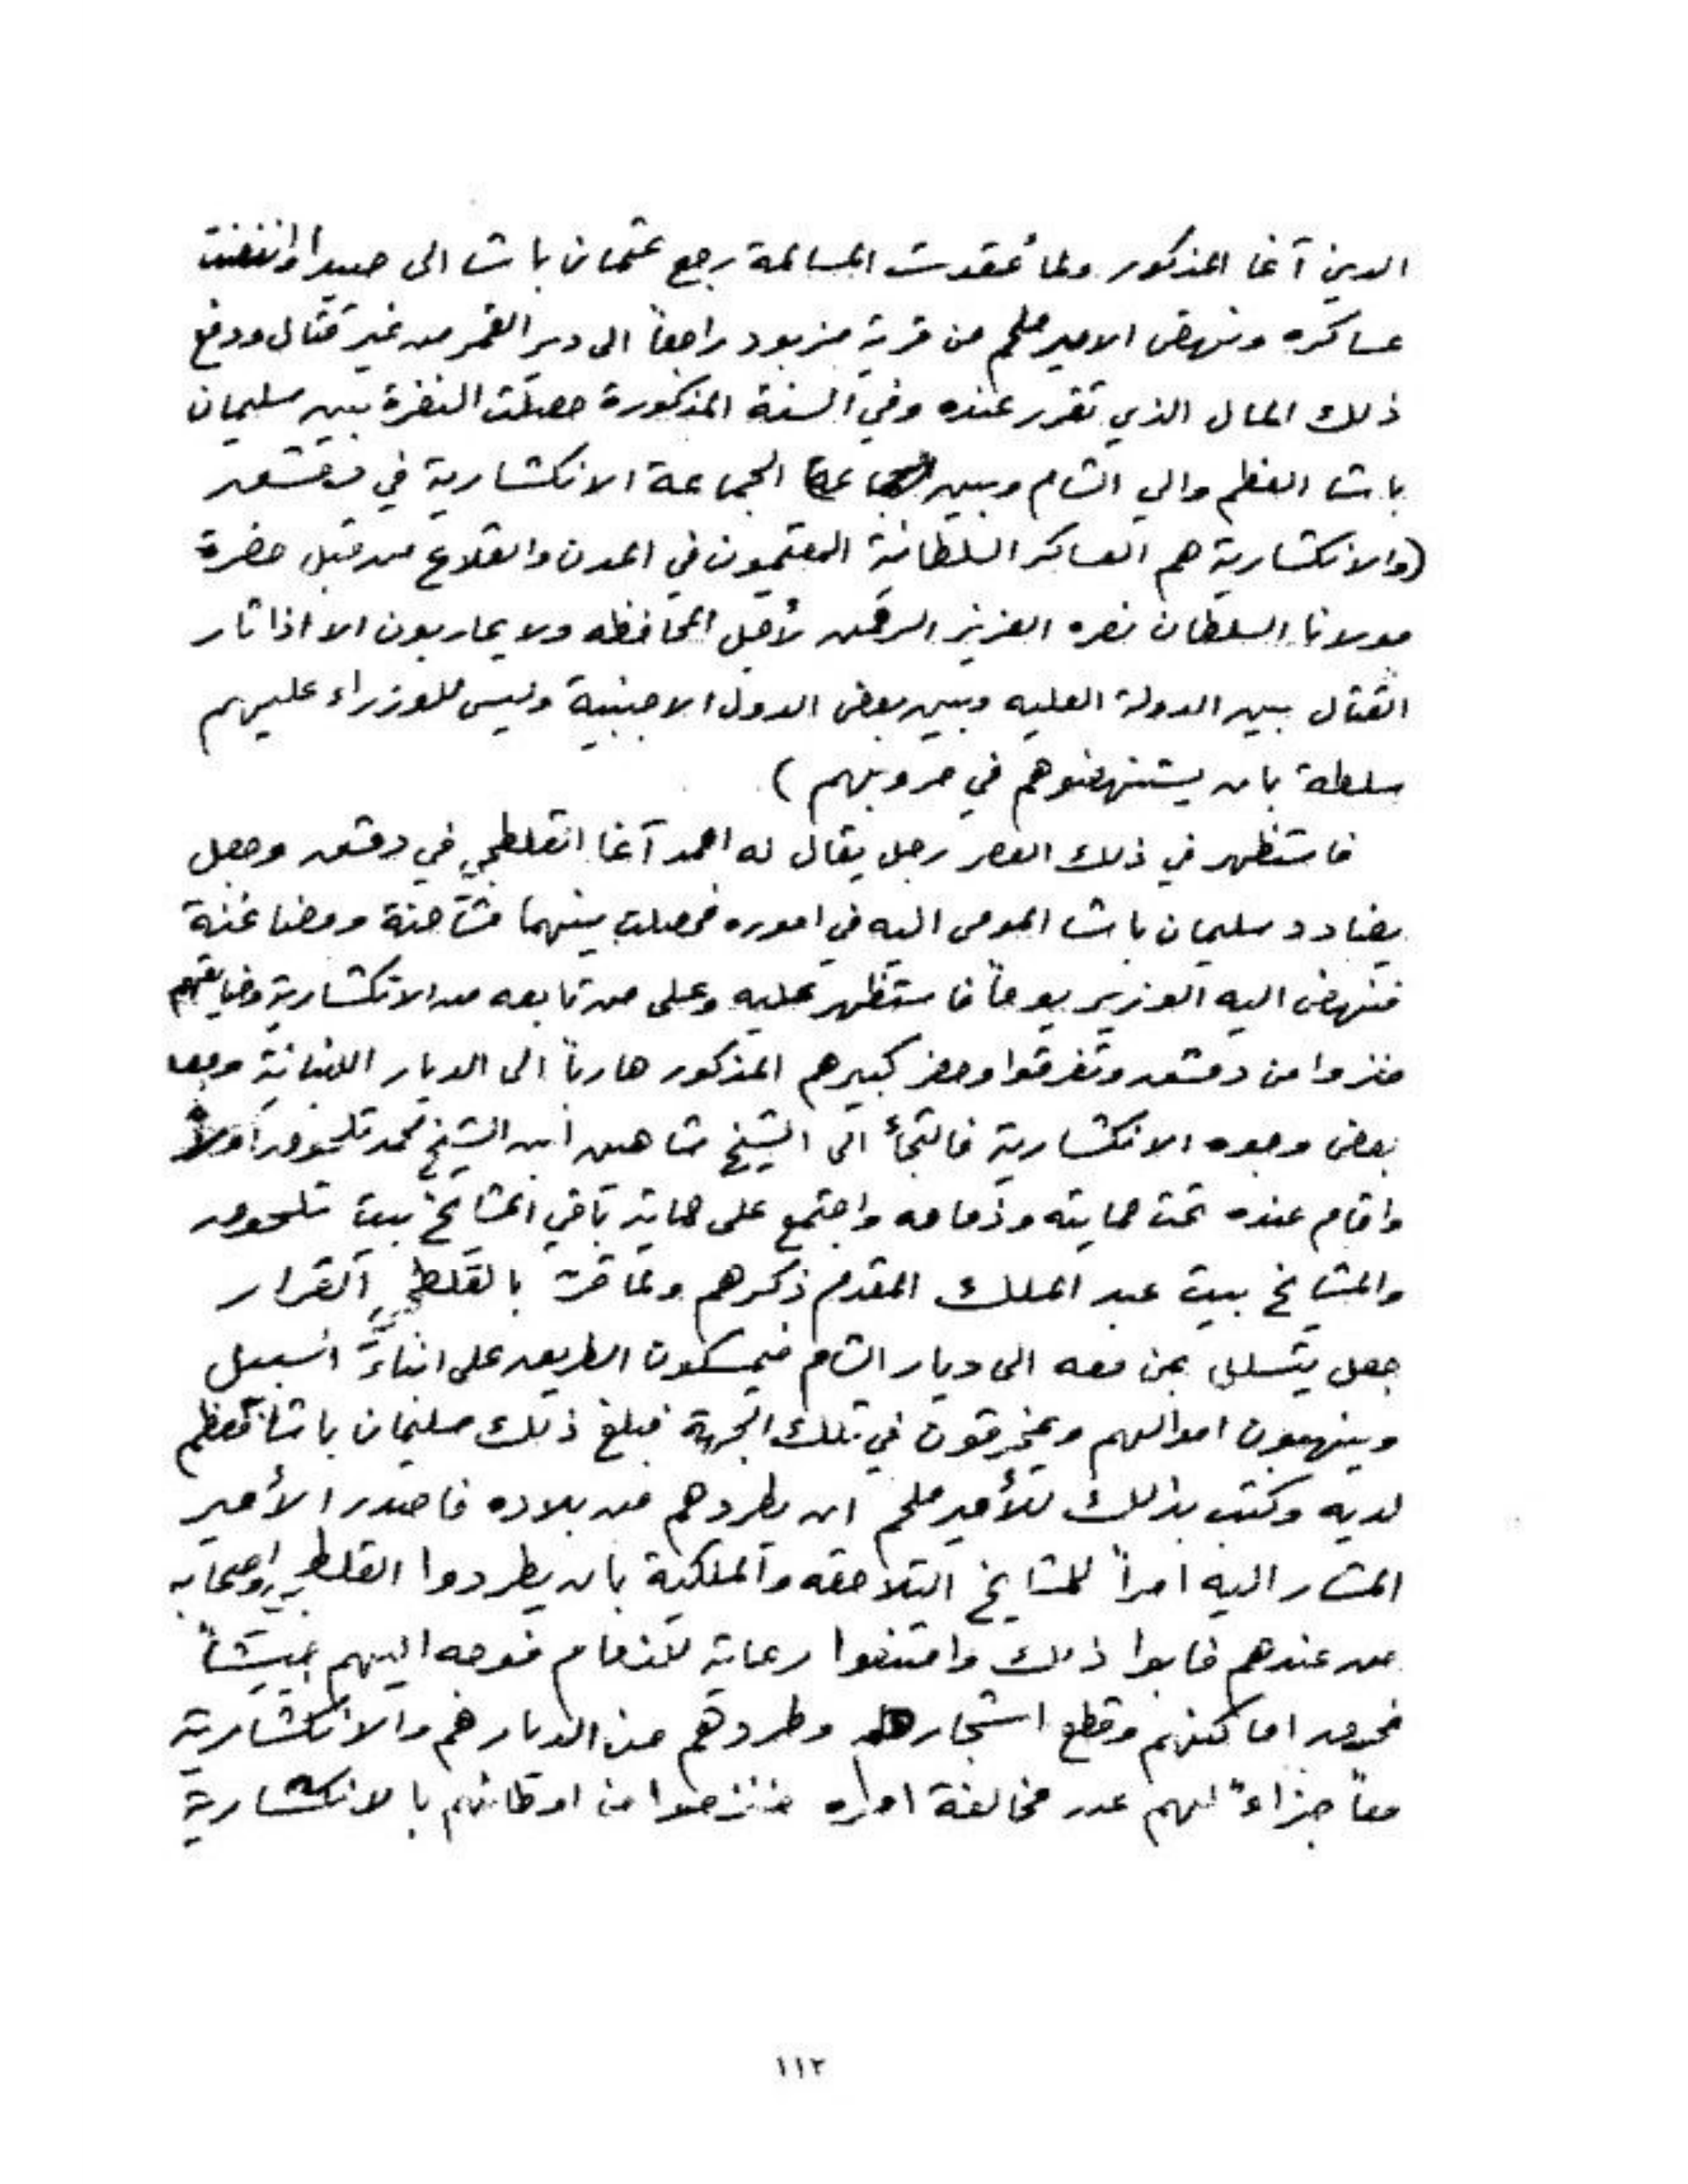 الدين آغا المذكور ولما عُقدت المسالمة رجع عثمان باشا الى صيدا وانفضت
عساكره ونهض الامير ملحم من قرية مزبود راجعاً الى دير القمر من غير قتال ودفع
ذلك المال الذي تقرر عنده وفي السنة المذكورة حصلت النفرة بين سليمان
باشا العظم والي الشام وبين الجماعة الانكشارية في دمشق
(والانكشارية هم العساكر السلطانية المقيمون في المدن والقلاع من قبل حضرة
مولانا السلطان نصره العزيز الرحمن لأجل المحافظه ولا يحاربون الا اذا ثار
القتال بين الدولة العليه وبين بعض الدول الاجنبية وليس للوزراء عليهم
سلطة بان يستنهضوهم في حروبهم)
فاستظهر في ذلك العصر رجل يقال له احمد آغا القلطجي في دمشق وجعل
يضادد سليمان باشا المومى اليه في اموره فحصلت بينهما مشاحنة ومضاغنة
فنهض اليه الوزير يوماً فاستظهر عليه وعلى من تابعه من الانكشارية وضايقهم
فنزوا من دمشق وتفرقوا وحضر كبيرهم المذكور هارباً الى الديار اللبنانية ومعه
بعض وجوه الانكشارية فالتجأ الى الشيخ شاهين ابن الشيخ محمد تلحوق اولاً
واقام عنده تحت حمايته وذمامه واجتمع على حمايته باقي المشايخ بيت تلحوق
والمشايخ بيت عبد الملك المقدم ذكرهم ولما قرّ بالقلطجي القرار
جعل يتسلل بمن معه الى ديار الشام فيمسكون الطريق على ابناء السبيل
وينهبون اموالهم ويمخرقون في تلك الجهة فبلغ ذلك سليمان باشا فعظم
لديه وكتب بذلك للأمير ملحم ان يطردهم من بلاده فاصدر الأمير
المشار اليه امراً للمشايخ التلاحقه والملكية بان يطردوا القلطجي واصحابه
من عندهم فابوا ذلك وامتنعوا رعاية للذمام فوجه اليهم جيشاً
فحرق اماكنهم وقطع اشجارهم وطردهم من الديار هم والانكشارية
معاً جزاءً لهم عن مخالفة امره فنزحوا من اوطانهم بالانكشارية
١١٢